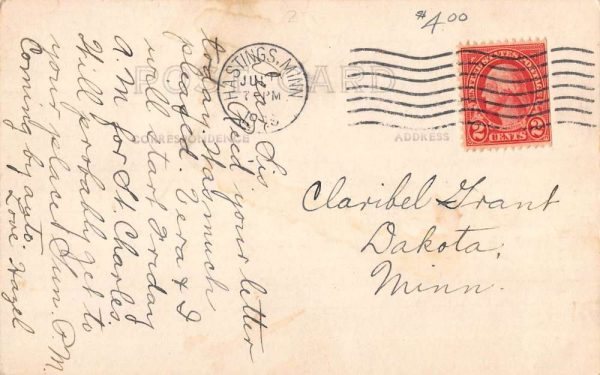 $4.00
POST CARD
CORRESPONDENCE
ADDRESS
HASTINGS, MINN
JUL
7 PM
UNITED STATES POSTAGE
2 CENTS 2
Claribel Grant
Dakota,
Minn.
Dear Sis
your letter
today. Was much
pleased. Vera & I
will start Friday
A.M. for St. Charles.
Will probably get to
your place Sun. P.M.
Coming by auto.
Love Hazel